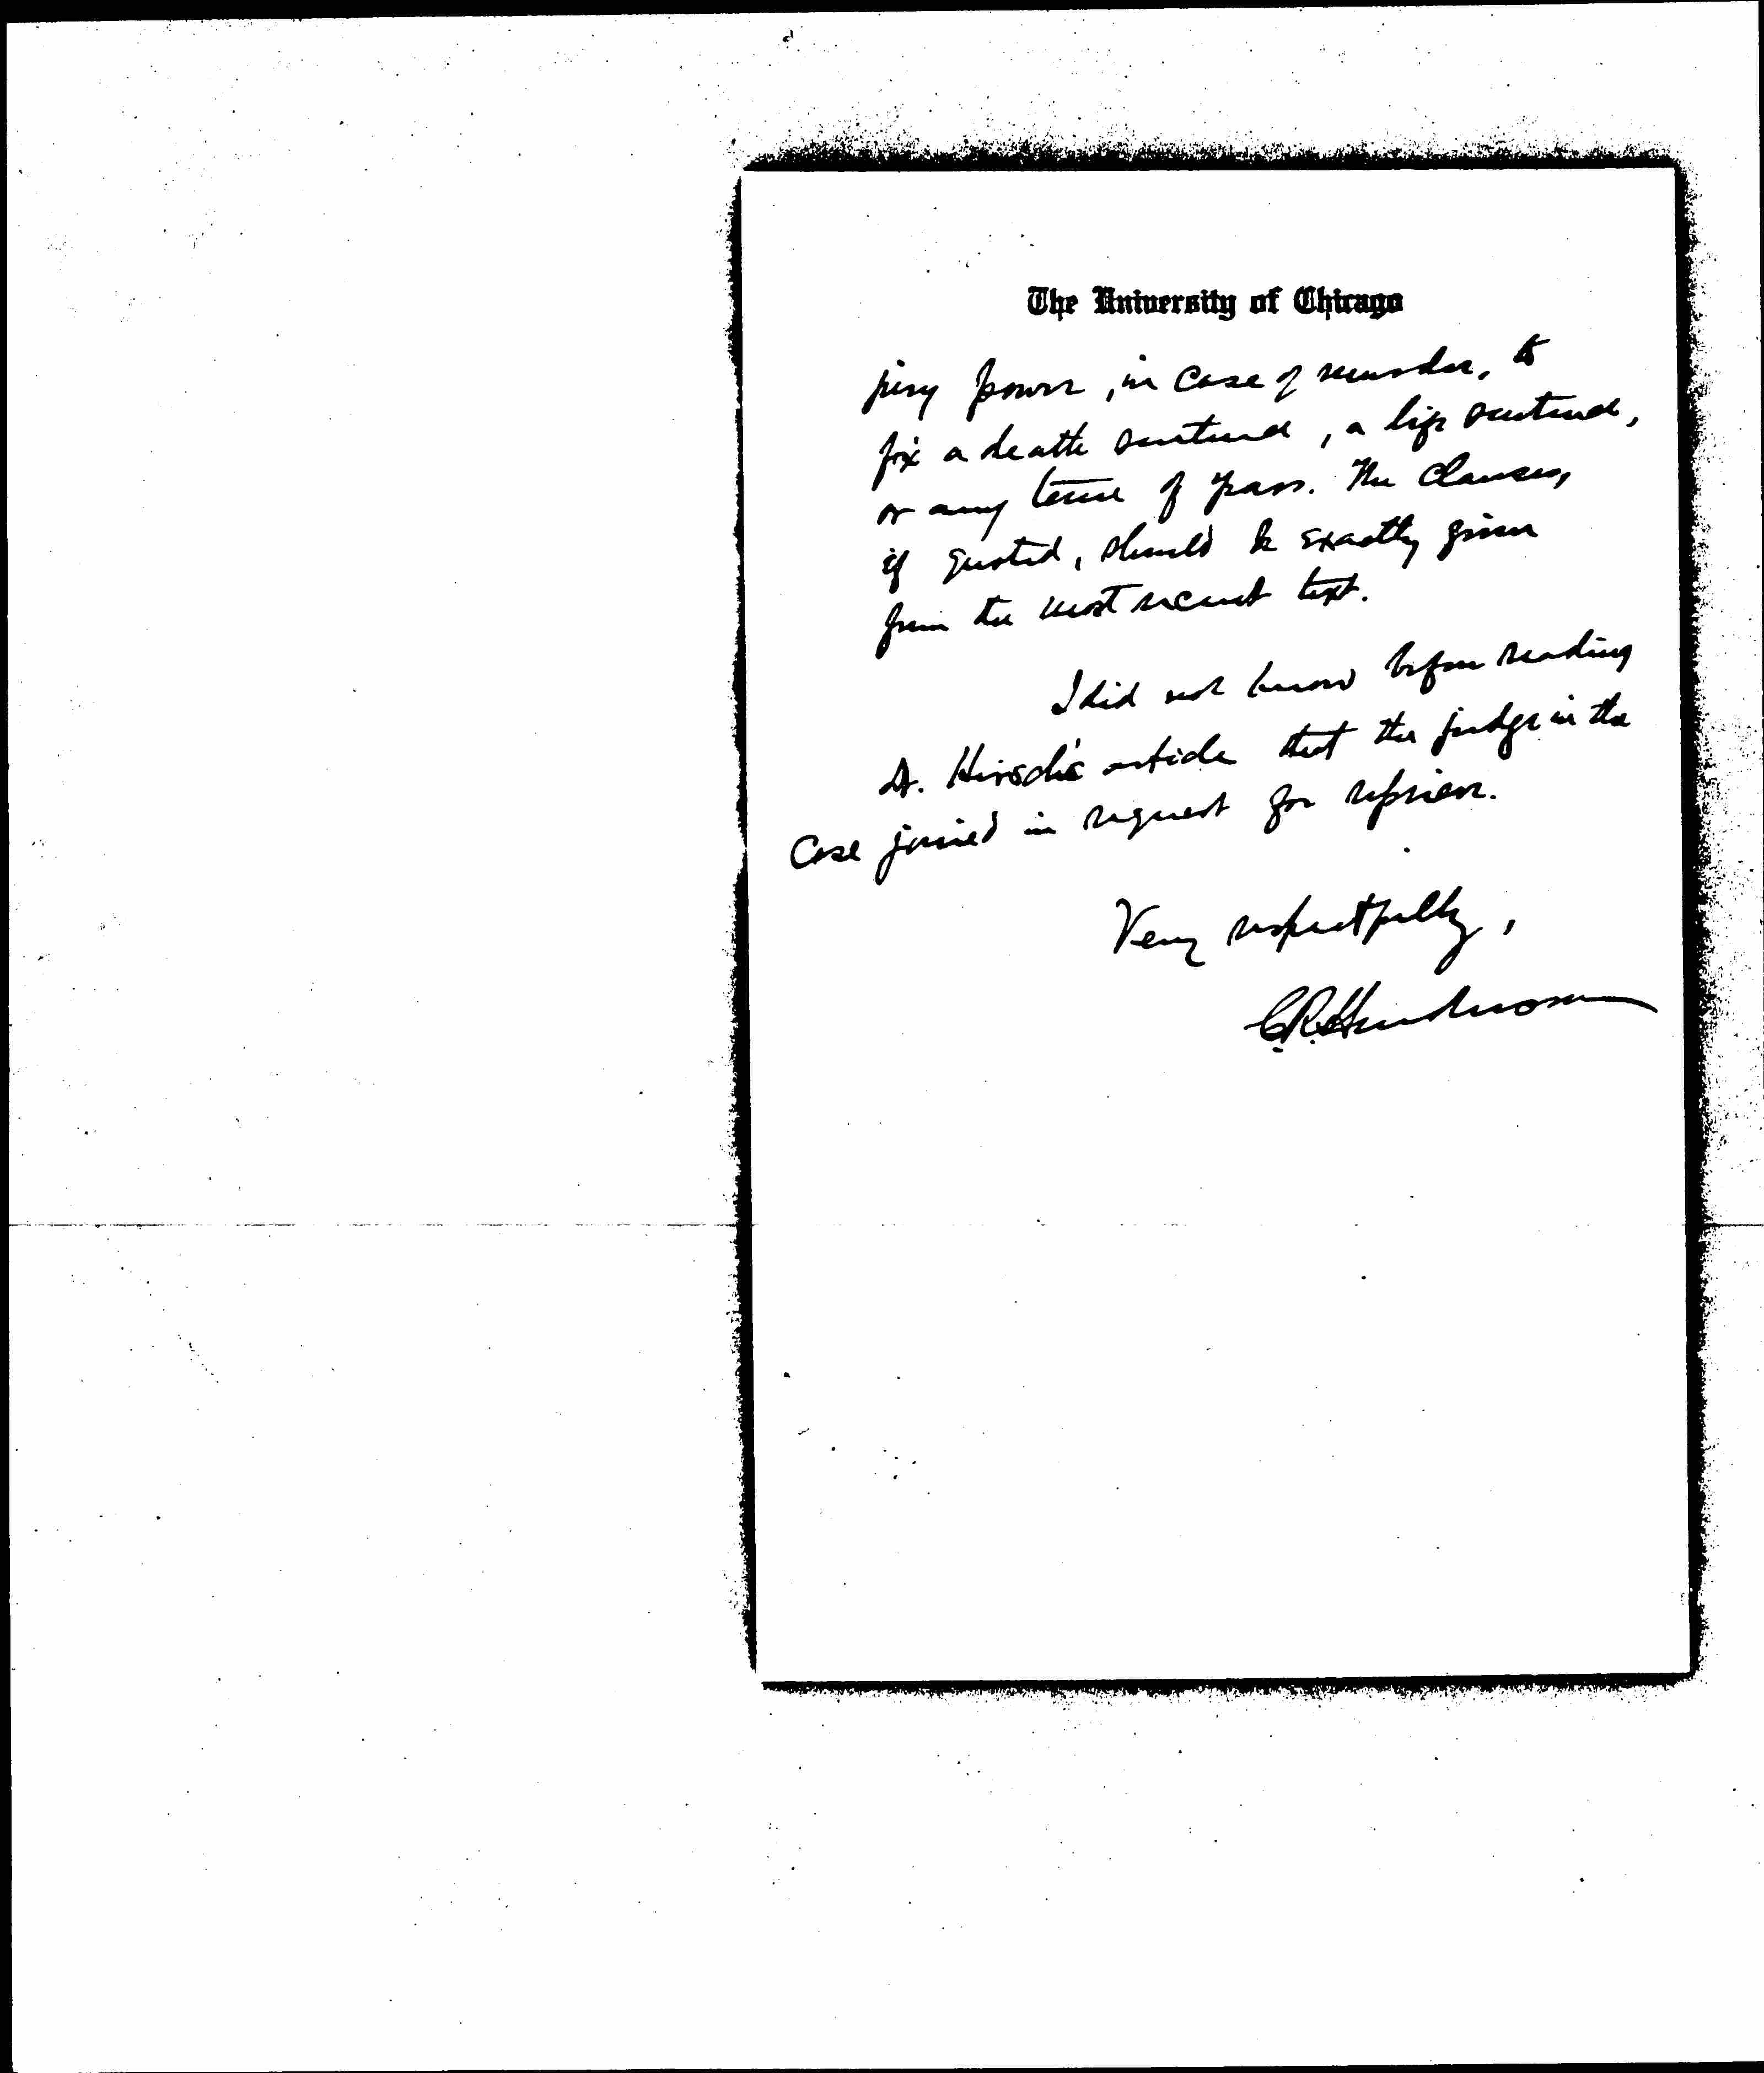 The University of Chicago
jury power, in case of murder, to
fix a death sentence, a life sentence,
or any term of years. The clauses,
if quoted, should be exactly given
from the most recent text.
I did not know before reading
Dr. Hirsch's article that the judge in the
case joined in request for reprieve.
Very respectfully,
C.R. Henderson